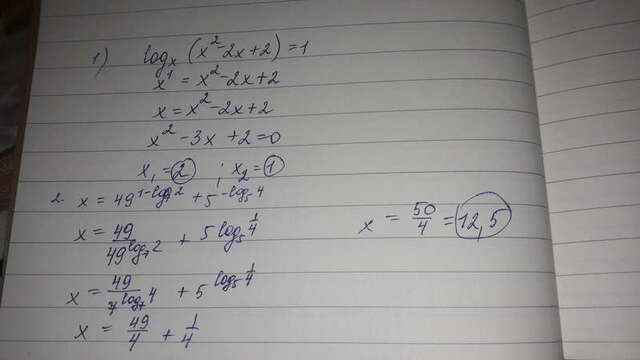 1) logₓ (x² - 2x + 2) = 1
x¹ = x² - 2x + 2
x = x² - 2x + 2
x² - 3x + 2 = 0
x₁ = 2 ; x₂ = 1
2. x = 49^(1 - log₇2) + 5^(-log₅4)
x = 49/49^(log₇2) + 5^(log₅ 1/4)
x = 49/7^(log₇4) + 5^(log₅ 1/4)
x = 49/4 + 1/4
x = 50/4 = 12,5